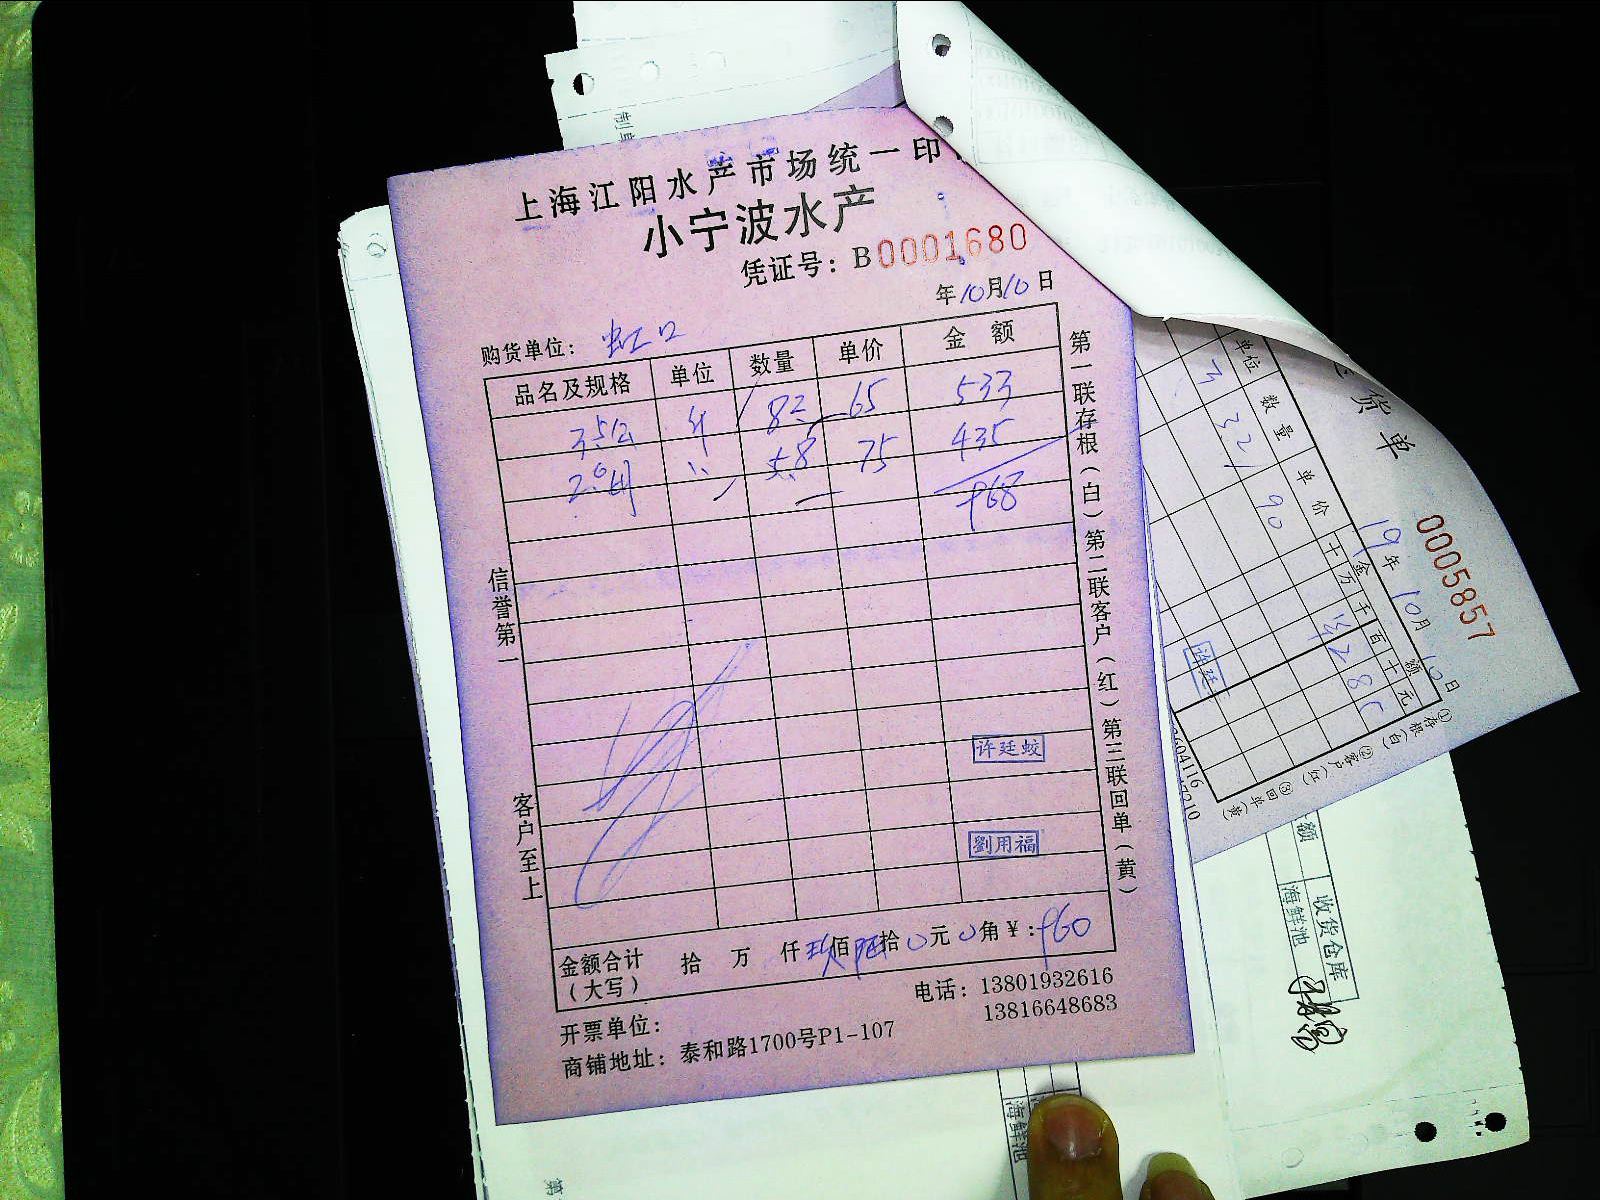 制单
上海江阳水产市场统一印
小宁波水产
凭证号：B0001680
年10月10日
购货单位：虹口
品名及规格 单位 数量 单价 金额
斤 82 65 533
5.8 75 435
968
信誉第一
客户至上
第一联存根（白）第二联客户（红）第三联回单（黄）
许廷蛟
劉用福
金额合计（大写） 拾 万 仟玖佰陆拾0元0角￥：960
电话：13801932616
13816648683
开票单位：
商铺地址：泰和路1700号P1-107
货单
0005857
19年10月10日
单位 数量 单价 金额
十万千百十元
32 90
288
许廷
①存根（白）②客户（红）③回单（黄）
额 收货仓库
海鲜池
海鲜池
第